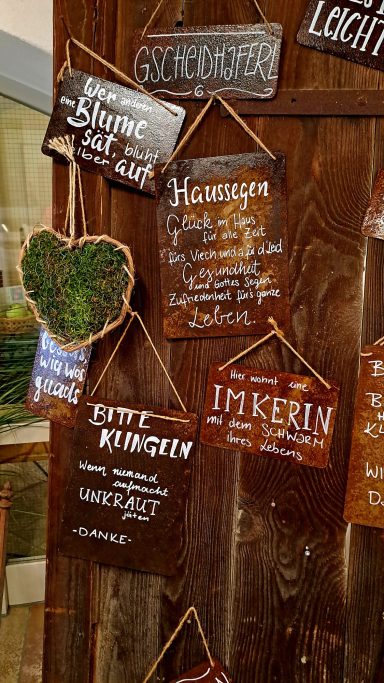 GSCHEIDHAFERL
6
LEICHT
Wer anderen
eine Blume
sät, blüht
selber auf
Haussegen
Glück im Haus
für alle Zeit
fürs Viech und a für d'Leid
Gesundheit
und Gottes Segen
Zufriedenheit für's ganze
Leben
wia wos
guads
Hier wohnt eine
IMKERIN
mit dem SCHWARM
ihres Lebens
BITTE
KLINGELN
Wenn niemand
aufmacht
UNKRAUT
jäten
-DANKE-